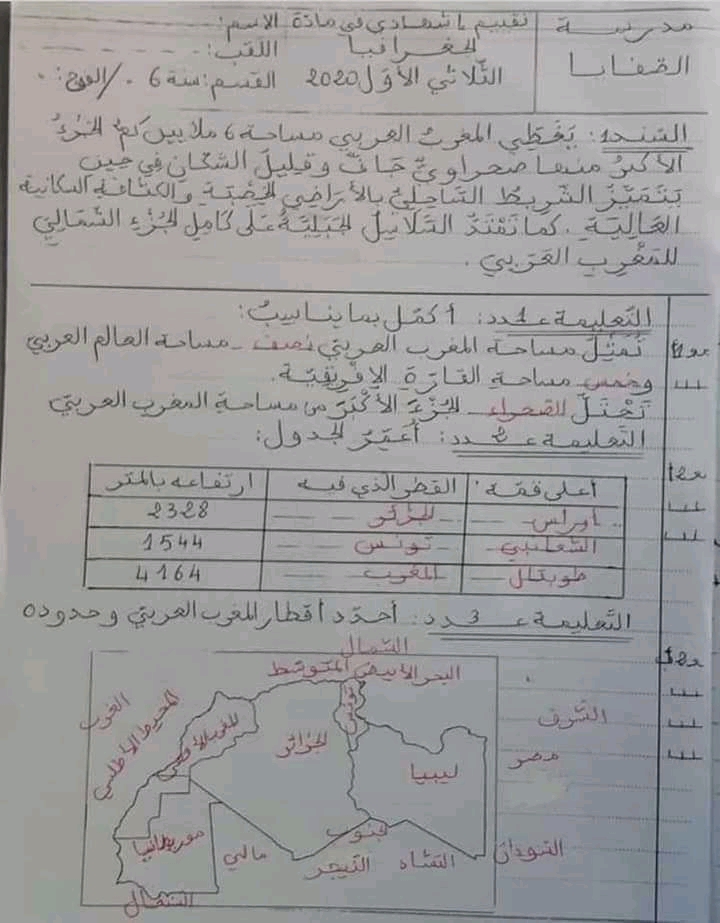 مدرسة
القضابا
تقييم إشهادي في مادة الاسم:
الجغرافيا اللقب:
الثّلاثي الأوّل 2020 القسم: سنة 6
السّند1: يُغطّي المغربُ العربي مساحة 6 ملايين كم² الجُزءُ
الأكبرُ منها صحراويٌّ جَافٌّ وقليلُ السُّكّانِ في حين
يتميّزُ الشّريطُ السّاحليُّ بالأراضي الخِصْبَةِ والكثافةِ السكانية
العَالِيَةِ. كما تَمْتَدُّ السّلاسِلُ الجَبَلِيَّةُ على كامِلِ الجُزْءِ الشّمالِيّ
للمَغْرِبِ العَرَبِي.
التّعليمة عــ1ــدد: أكمّل بما يناسِبُ:
تُمثِّلُ مساحة المغرب العربيّ نصف مساحة العالم العربي
وخمس مساحةِ القارّةِ الإفريقيّة.
تَحْتَلُّ الصحراء الجُزْءَ الأكْبَرَ من مساحة المغرب العربيّ
التّعليمة عــ2ــدد: أعمّرُ الجدول:
أعلى قمّة القطر الذي فيه ارتفاعه بالمتر
أوراس الجزائر 2328
الشعانبي تونس 1544
طوبقال المغرب 4164
التّعليمة عــ3ــدد: أحدّد أقطار المغرب العربيّ وحدوده
الشمال
البحر الأبيض المتوسّط
الغرب
المحيط الأطلسي
المغرب الأقصى
الجزائر
تونس
ليبيا
الشّرق
مصر
موريطانيا
مالي
الجنوب
النّيجر
التشاد
السّودان
السنغال